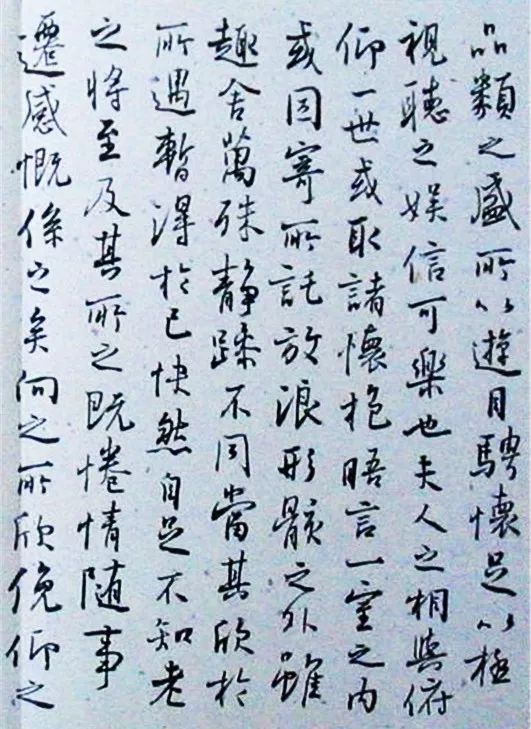 品類之盛所以遊目騁懷足以極
視聽之娛信可樂也夫人之相與俯
仰一世或取諸懷抱晤言一室之內
或因寄所託放浪形骸之外雖
趣舍萬殊靜躁不同當其欣於
所遇暫得於己快然自足不知老
之將至及其所之既惓情隨事
遷感慨係之矣向之所欣俛仰之